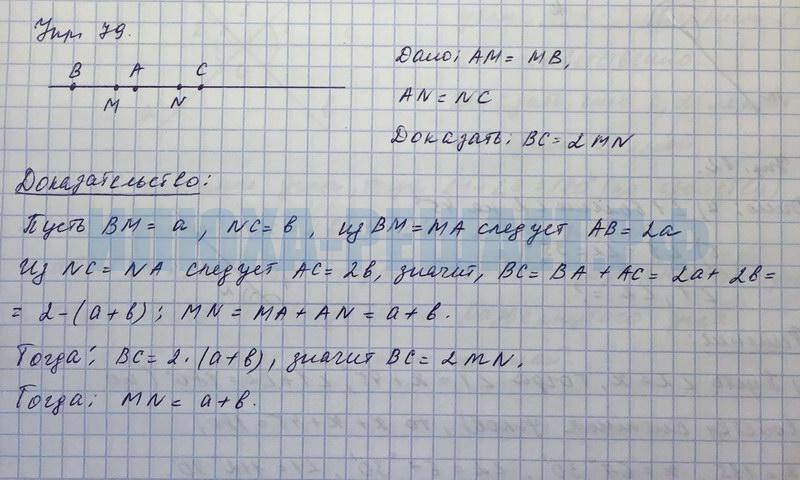 Упр 79.
B A C
M N
Дано: AM = MB,
AN = NC
Доказать: BC = 2MN
Доказательство:
Пусть BM = a, NC = b, из BM = MA следует AB = 2a
Из NC = NA следует AC = 2b, значит, BC = BA + AC = 2a + 2b =
= 2-(a+b); MN = MA + AN = a + b.
Тогда: BC = 2·(a+b), значит BC = 2MN.
Тогда: MN = a+b.